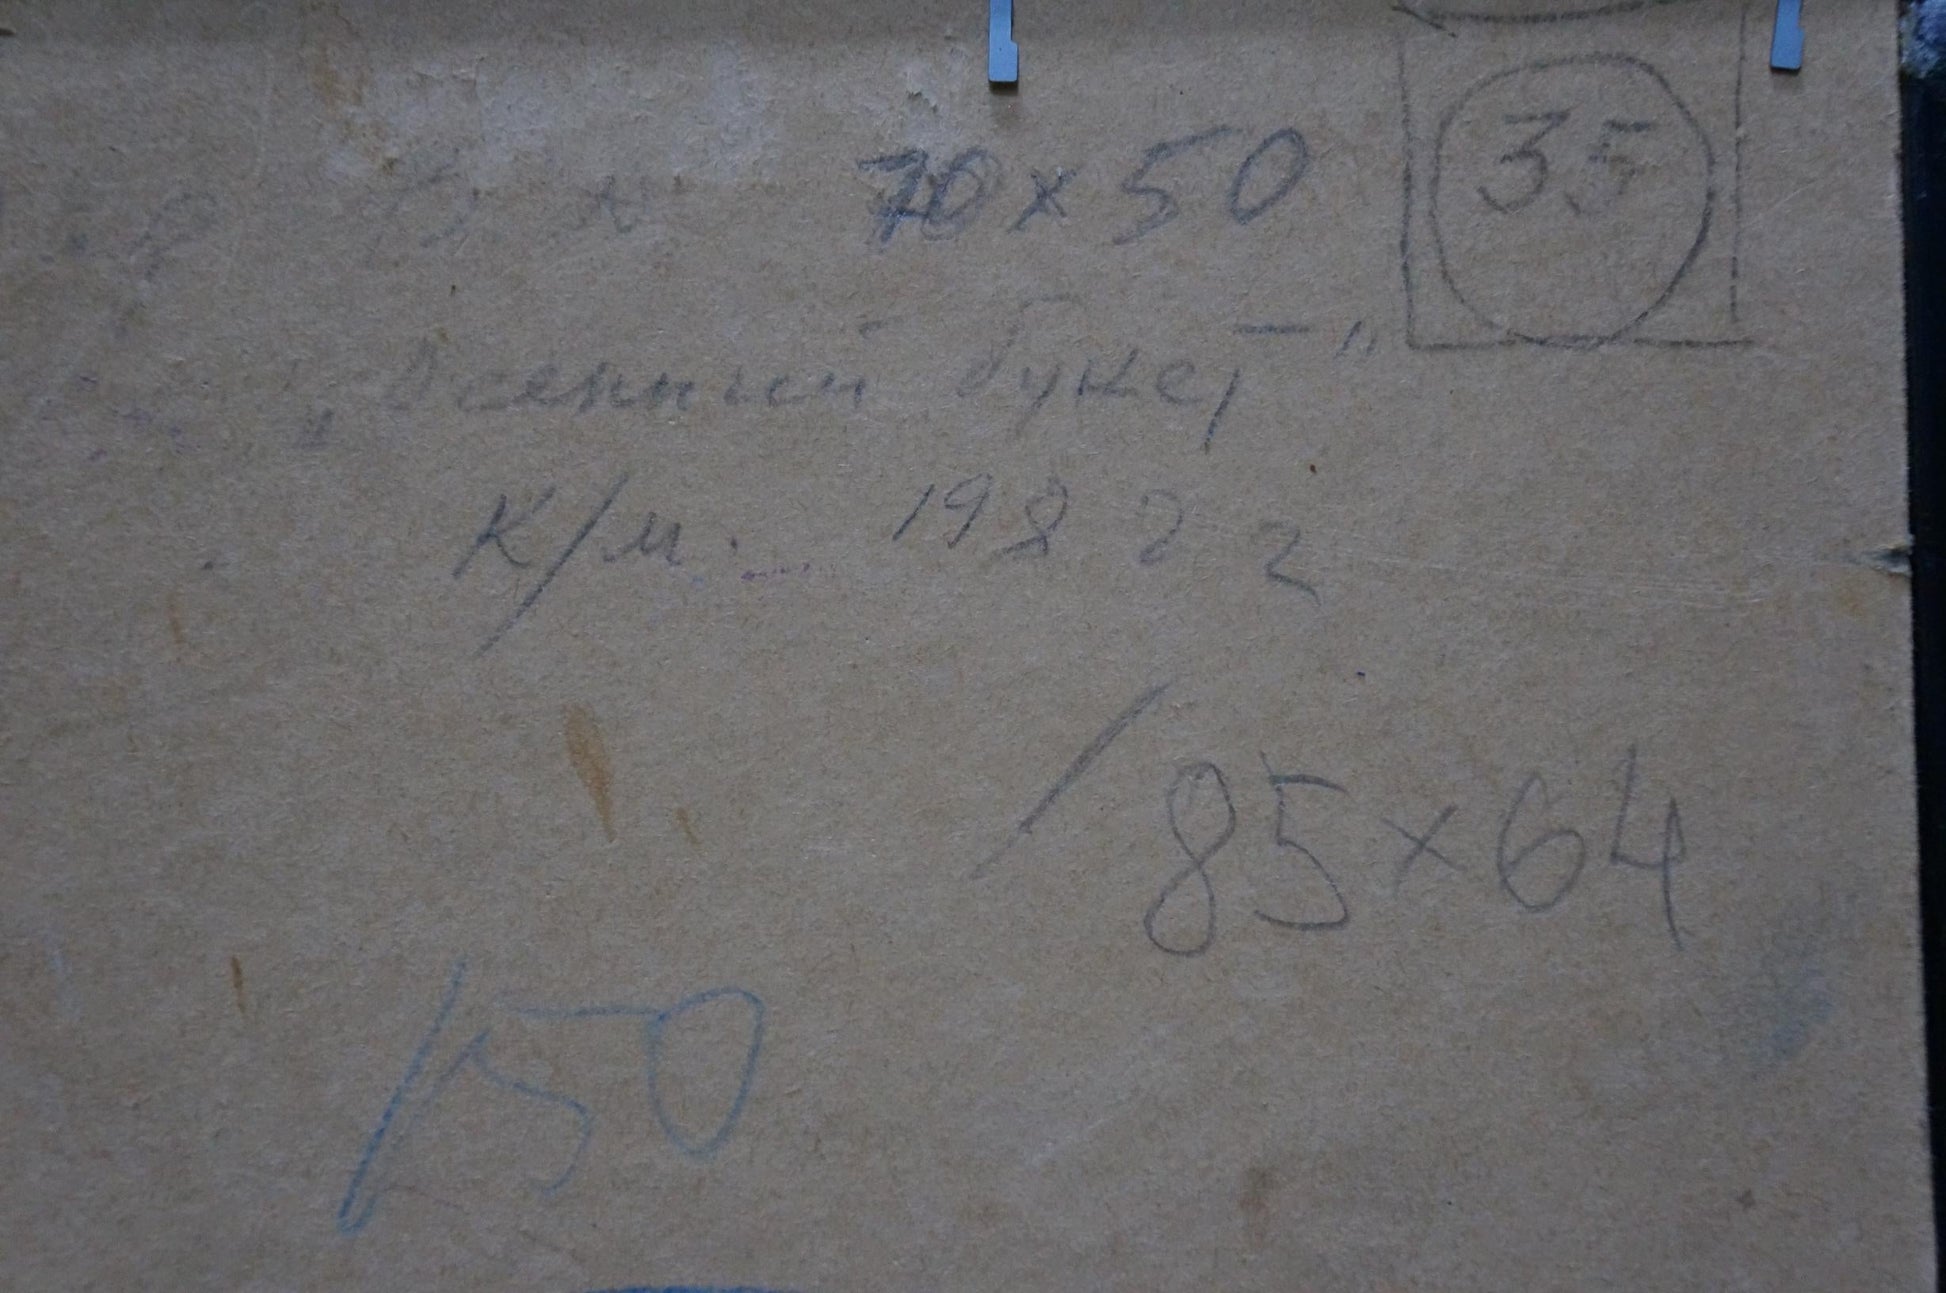 70 x 50
35
„Осенний букет"
К/м. 1982 г
85 x 64
150